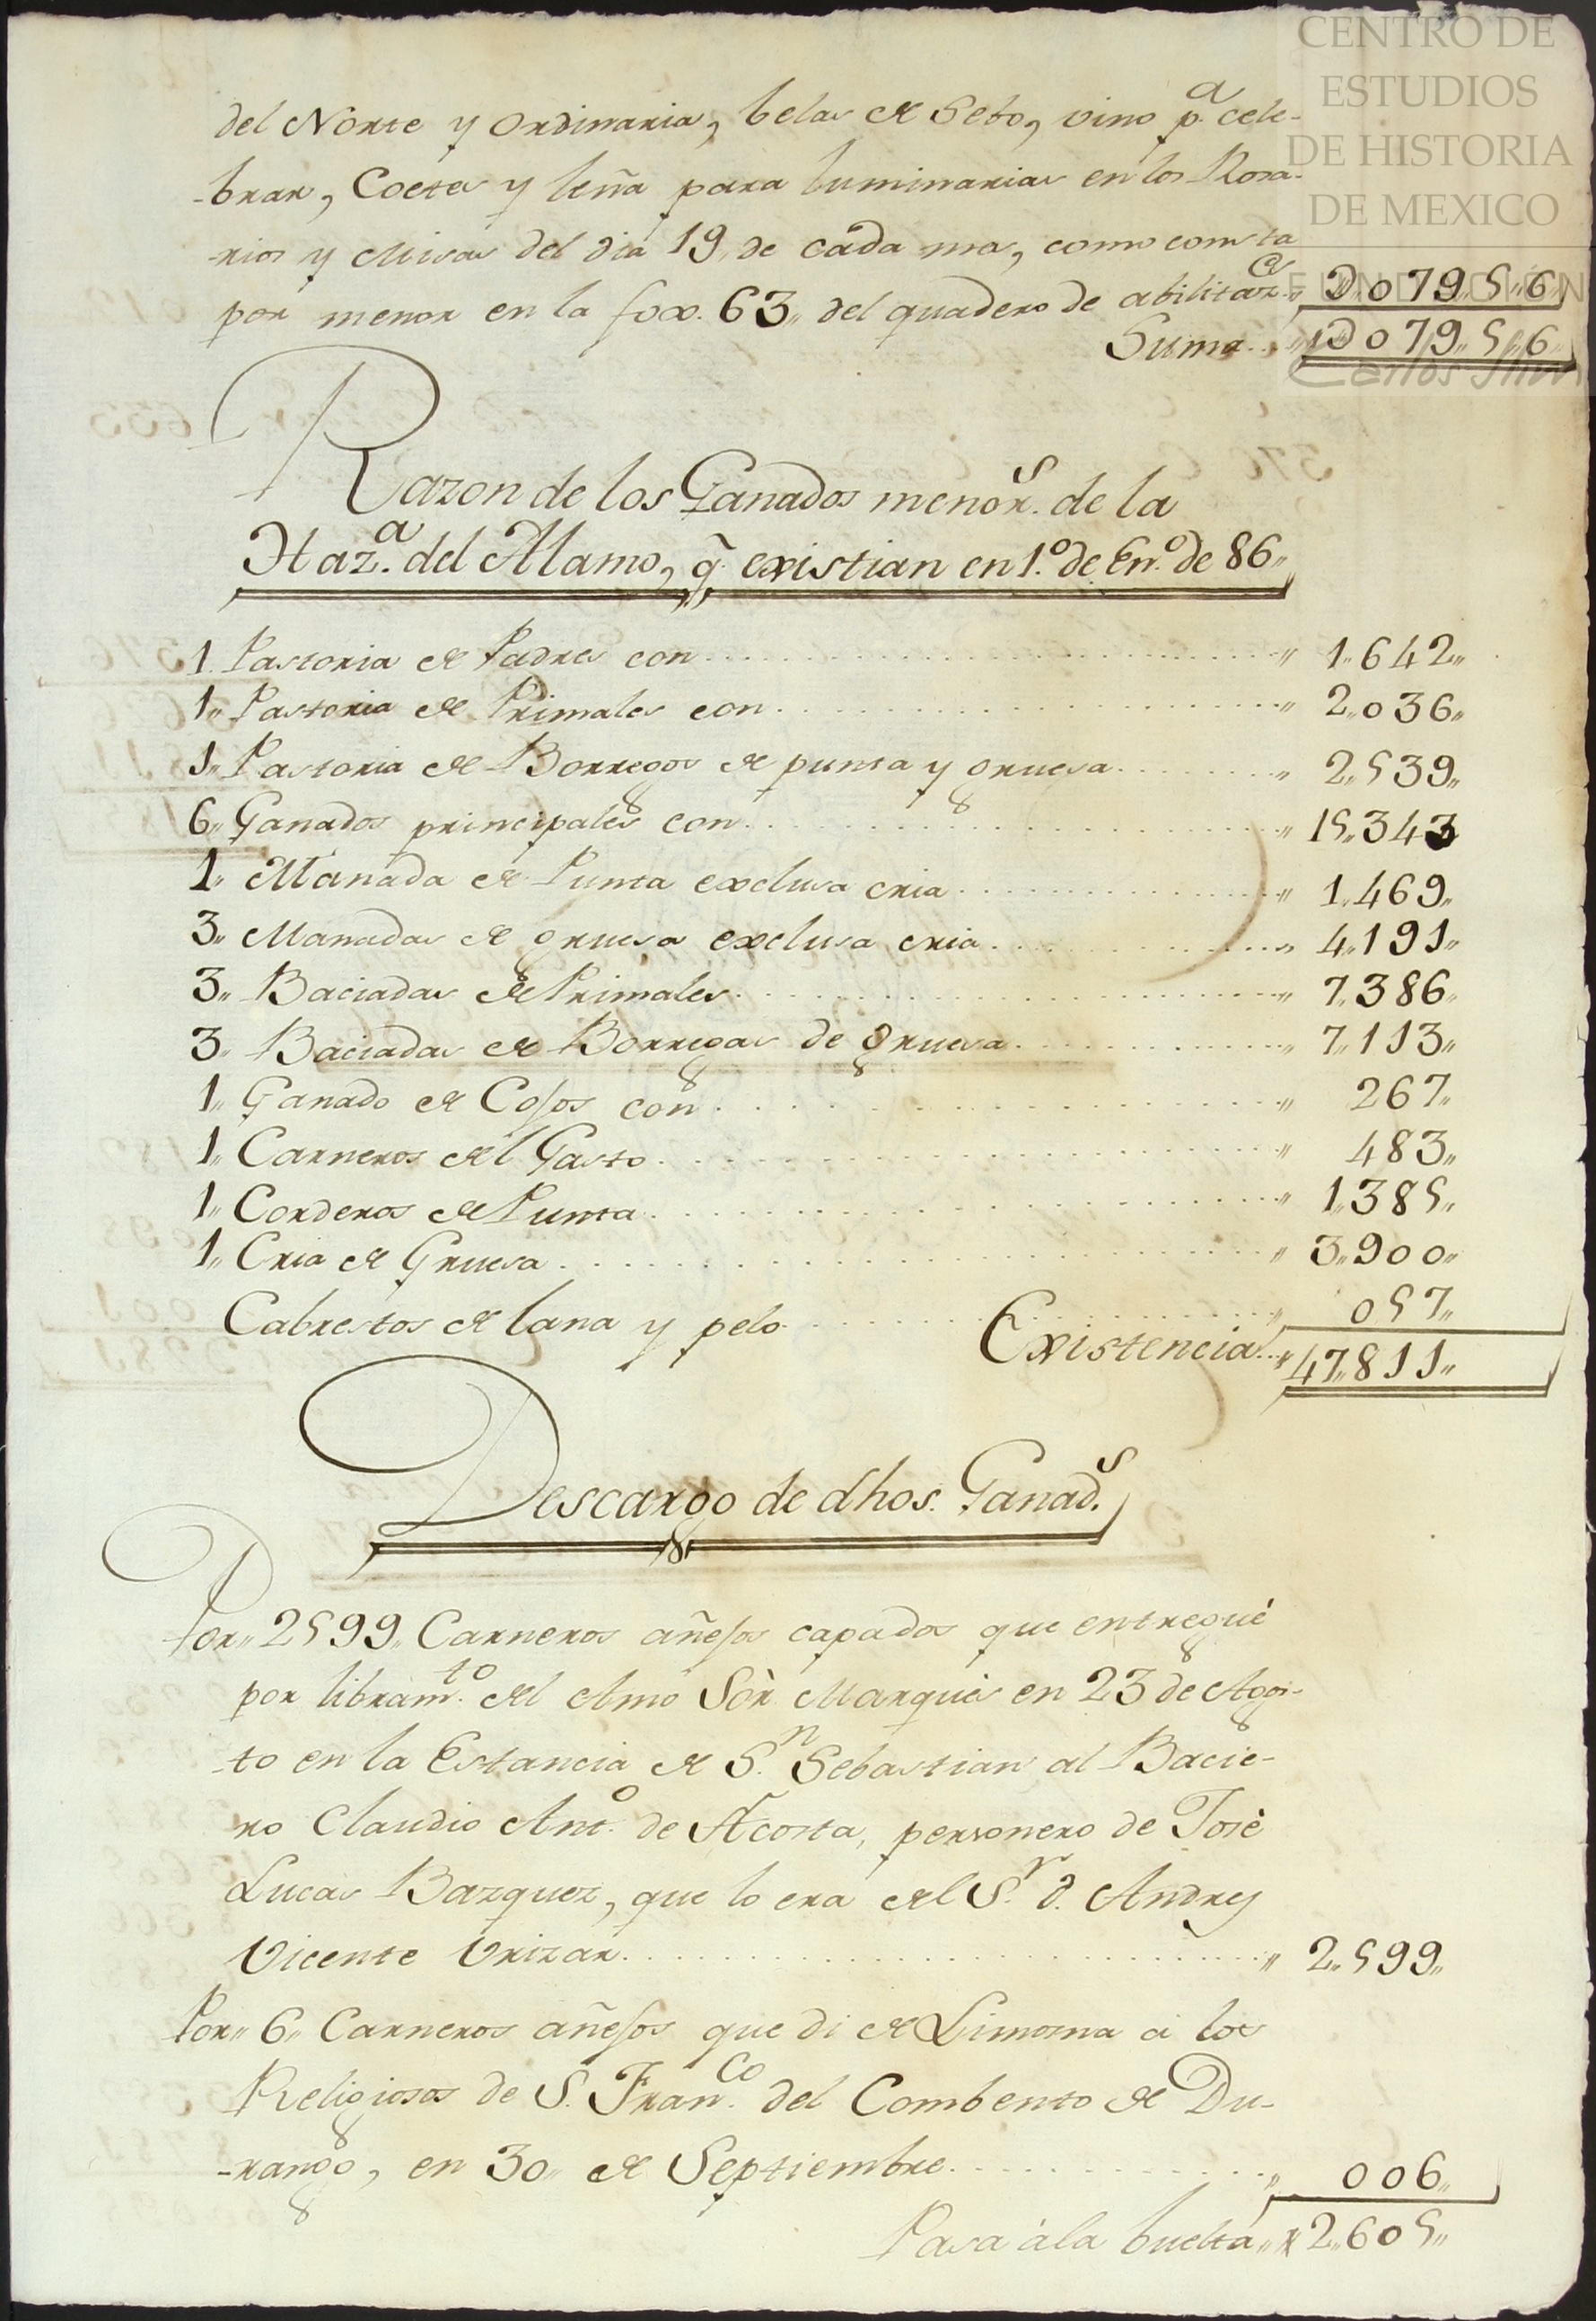 CENTRO DE
ESTUDIOS
DE HISTORIA
DE MEXICO
FUNDACIÓN
Carlos Slim
del Norte y Ordinaria, belas de Sebo, vino p.ª cele-
-brar, Coetes y leña para luminarias en los Rosa-
-rios y Misas del dia 19, de cada mes, como consta
por menor en la fox. 63,, del quaderno de abilitaz.es ,, D,, 079,, 5,, 6,,
Suma... ,, D 079,, 5,, 6,,
Razon de los Ganados menor.s de la
Haz.a del Alamo, q̃ existian en 1.º de En.º de 86,,
1. Pastoria de Padres con ,, 1,, 642,,
1,, Pastoria de Primales con ,, 2,, 036,,
1,, Pastoria de Borregos de punta y gruesa ,, 2,, 539,,
6,, Ganados principales con ,, 15,, 343
1,, Manada de Punta exclusa cria ,, 1,, 469,,
3,, Manadas de gruesa exclusa cria ,, 4,, 191,,
3,, Baciadas de Primales ,, 7,, 386,,
3,, Baciadas de Borregas de gruesa ,, 7,, 113,,
1,, Ganado de Cojos con ,, 267,,
1,, Carneros del Gasto ,, 483,,
1,, Corderos de Punta ,, 1,, 385,,
1,, Cria de Gruesa ,, 3,, 900,,
Cabrestos de lana y pelo ,, 057,,
Existencia... ,, 47,, 811,,
Descargo de dhos. Ganad.s
Por,, 2599,, Carneros añejos capados que entregué
por libram.to del Amo Sòr. Marquès en 23 de Agos-
-to en la Estancia de S.n Sebastian al Bacie-
ro Claudio Ant.º de Acosta, personero de Josè
Lucas Bazquez, que lo era del S.r d. Andres
Vicente Urizar ,, 2,, 599,,
Por,, 6,, Carneros añejos que di de Limosna à los
Religiosos de S. Fran.co del Combento de Du-
-rango, en 30,, de Septiembre ,, 006,,
Pasa à la buelta,, 2,, 605,,